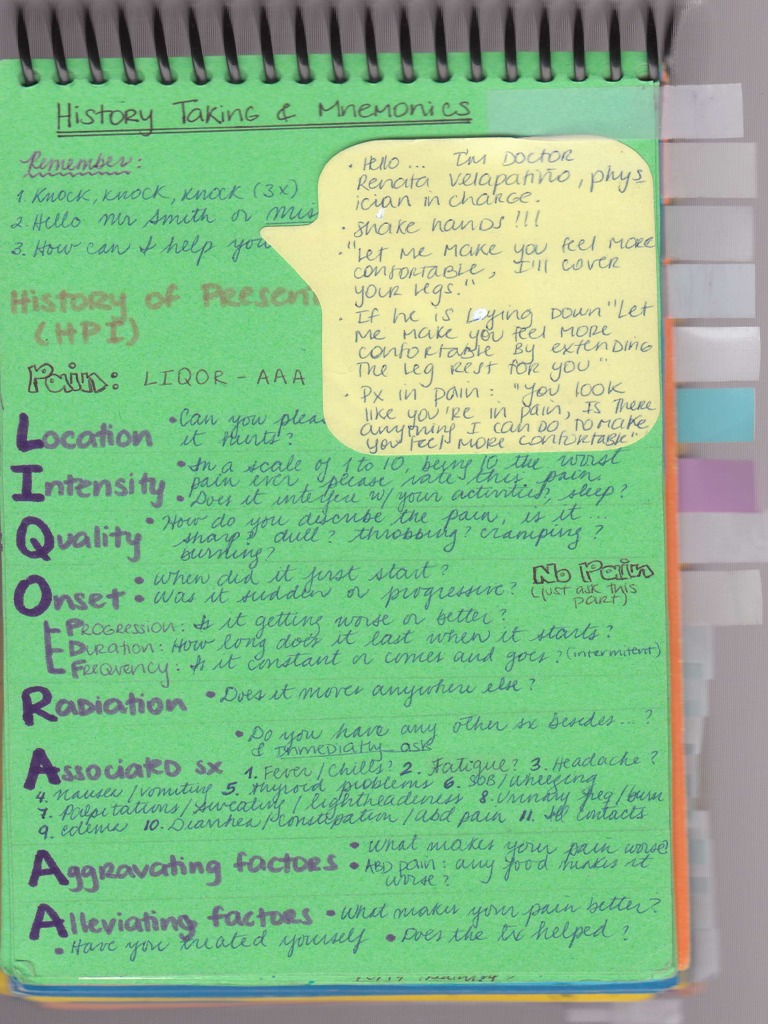 History Taking & Mnemonics
Remember:
1. Knock, knock, knock (3x)
2. Hello Mr Smith or Mis
3. How can I help you
· Hello ... I'm Doctor
Renata Velapatiño, phys
ician in charge.
· Shake hands !!!
· "Let me make you feel more
confortable, I'll cover
your legs."
· If he is laying down "Let
me make you feel more
confortable by extending
the leg rest for you"
· Px in pain: "you look
like you're in pain, is there
anything I can do to make
you feel more confortable"
History of Presen
(HPI)
Pain: LIQOR - AAA
Location · Can you plea
it hurts?
Intensity · In a scale of 1 to 10, being 10 the worst
pain ever, please rate this pain.
· Does it interfere w/ your activities? sleep?
Quality · How do you discribe the pain, is it ...
sharp? dull? throbbing? cramping?
burning?
Onset · When did it first start?
· Was it sudden or progressive?
No Pain
(just ask this
part)
Progression: Is it getting worse or better?
Duration: How long does it last when it starts?
Frequency: Is it constant or comes and goes? (intermitent)
Radiation · Does it moves anywhere else?
· Do you have any other sx besides...?
& Immediatly ask
Associated sx 1. Fever/Chills? 2. Fatigue? 3. Headache?
4. Nausea/vomiting 5. Thyroid problems 6. SOB/wheezing
7. Palpitations/sweating/lightheadeness 8. Urinary freq/burn
9. edema 10. Diarrhea/constipation/abd pain 11. Ill contacts
Aggravating factors · What makes your pain worse
· ABD pain: any food makes it
worse?
Alleviating factors · What makes your pain better?
· Have you treated yourself · Does the tx helped?